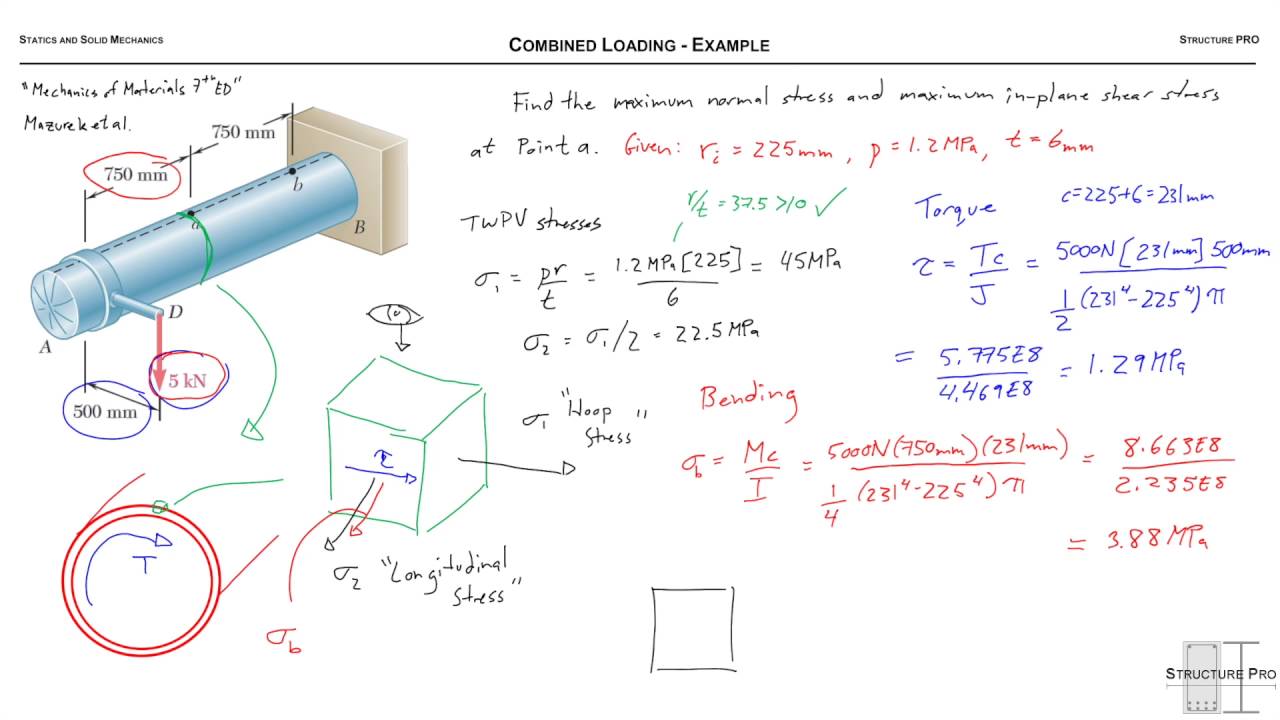 STATICS AND SOLID MECHANICS
COMBINED LOADING - EXAMPLE
STRUCTURE PRO
"Mechanics of Materials 7th ED"
Mazurek et al.
750 mm
750 mm
a
b
B
A
D
5 kN
500 mm
Find the maximum normal stress and maximum in-plane shear stress
at Point a. Given: ri = 225mm, p = 1.2MPa, t = 6mm
r/t = 37.5 >10 ✓
TWPV stresses
σ1 = pr/t = 1.2 MPa [225]/6 = 45MPa
σ2 = σ1/2 = 22.5 MPa
Torque
c=225+6=231mm
τ = Tc/J = 5000N[231mm] 500mm / ½(231⁴-225⁴)π
= 5.775E8/4.469E8 = 1.29MPa
Bending
σb = Mc/I = 5000N(750mm)(231mm) / ¼(231⁴-225⁴)π = 8.663E8/2.235E8
= 3.88MPa
σ1 "Hoop
stress"
τ
σ2 "Longitudinal
stress"
T
σb
STRUCTURE PRO